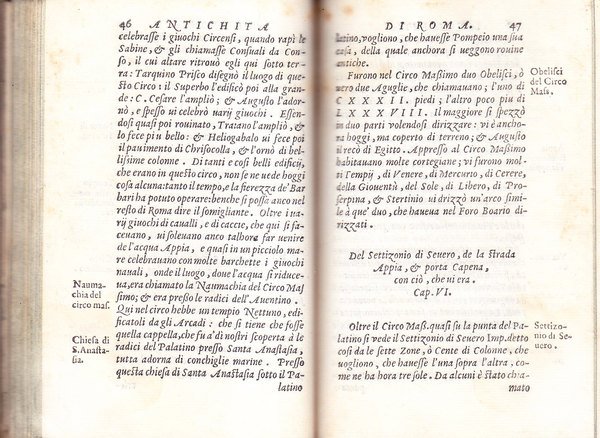 46 ANTICHITA
celebrasse i giuochi Circensi, quando rapì le
Sabine, & gli chiamasse Consuali da Con-
so, il cui altare ritrouò egli qui sotto ter-
ra: Tarquino Prisco disegnò il luogo di que-
sto Circo: il Superbo l'edificò poi alla gran-
de: C. Cesare l'ampliò; & Augusto l'ador-
nò, e spesso ui celebrò uarij giuochi. Essen-
dosi quasi poi rouinato, Traiano l'ampliò, &
lo fece piu bello: & Heliogabalo ui fece poi
il pauimento di Chrisocolla, & l'ornò di bel-
lisime colonne. Di tanti e così belli edificij, che
che erano in questo circo, non se ne uede hoggi
cosa alcuna: tanto il tempo, e la fierezza de' Bar
bari ha potuto operare: benche si possa anco nel
resto di Roma dire il somigliante. Oltre i ua-
rij giuochi di caualli, e di caccie, che qui si fa-
ceuano, ui soleuano anco talhora far uenire
de l'acqua Appia, e quasi in un picciolo ma-
re celebrauano con molte barchette i giuochi
nauali, onde il luogo, doue l'acqua si riduce-
ua, era chiamato la Naumachia del Circo Mas
simo; & era presso le radici dell'Auentino.
Naumachia del circo mas.
Qui nel circo hebbe un tempio Nettuno, edi-
ficatoli da gli Arcadi: che si tiene che fosse
quella cappella, che fu a' dì nostri scoperta à le
radici del Palatino presso Santa Anastasia,
tutta adorna di conchiglie marine. Presso
questa chiesa di Santa Anastasia sotto il Pa-
latino
Chiesa di S. Anastasia.
DI ROMA. 47
latino, vogliono, che hauesse Pompeio una sua
casa, della quale anchora si ueggono rouine
antiche.
Furono nel Circo Massimo duo Obelisci, ò
vero due Aguglie, che chiamauano; l'uno di
CXXXII. piedi; l'altro poco piu di
LXXXVIII. Il maggiore si spezzò
in duo parti volendosi dirizzare: vi è ancho-
ra hoggi, ma coperto di terreno; & Augusto
il recò di Egitto. Appresso al Circo Massimo
habitauano molte cortegiane; vi furono mol-
ti Tempij, di Venere, di Mercurio, di Cerere,
della Giouentù, del Sole, di Libero, di Pro-
serpina, & Stertinio ui drizzò un'arco simi-
le à que' duo, che haueua nel Foro Boario di-
rizzati.
Obelisci del Circo Mass.
Del Settizonio di Seuero, de la strada
Appia, & porta Capena,
con ciò, che ui era.
Cap. VI.
Oltre il Circo Mass. quasi su la punta del Pa-
latino si vede il Settizonio di Seuero Imp. detto
così da le sette Zone, ò Cente di Colonne, che
uogliono, che hauesse l'una sopra l'altra, co-
me ne ha hora tre sole. Da alcuni è stato chia-
mato
Settizonio di Seuero.